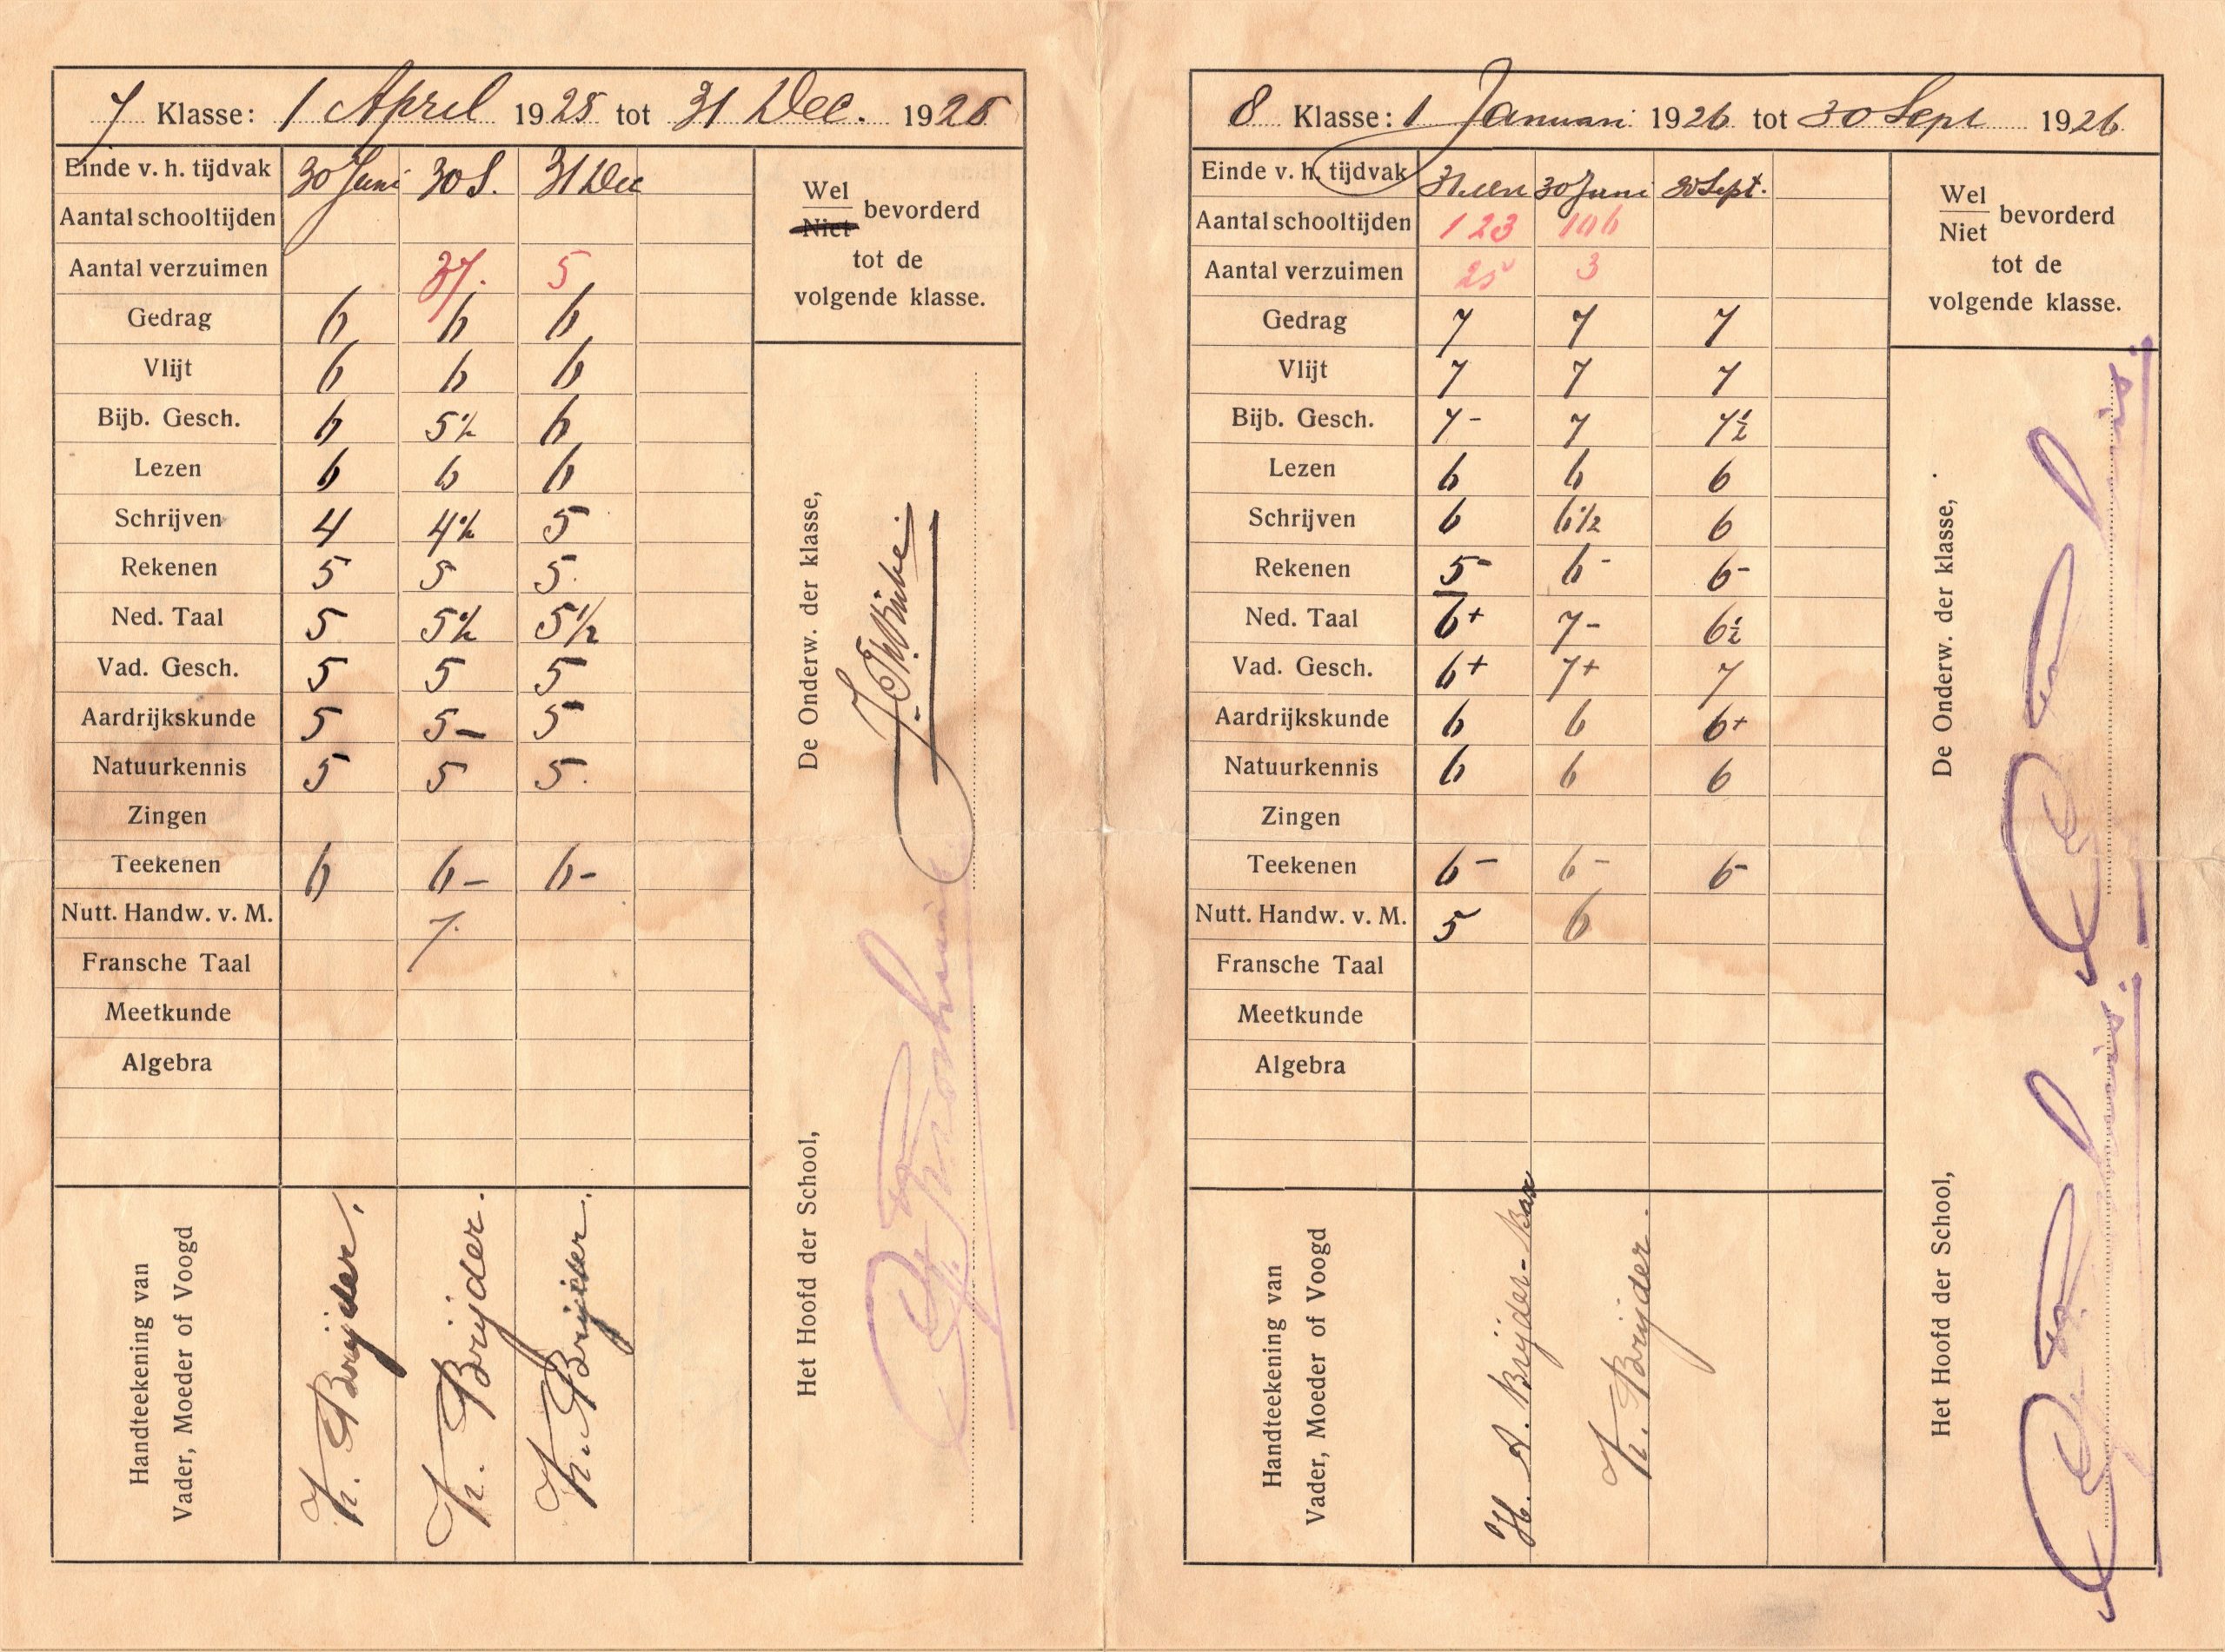 7 Klasse: 1 April 1925 tot 31 Dec. 1925
Einde v. h. tijdvak 30 Juni 30 S. 31 Dec
Aantal schooltijden
Aantal verzuimen 37. 5
Gedrag 6 6 6
Vlijt 6 6 6
Bijb. Gesch. 6 5½ 6
Lezen 6 6 6
Schrijven 4 4½ 5
Rekenen 5 5 5.
Ned. Taal 5 5½ 5½
Vad. Gesch. 5 5 5
Aardrijkskunde 5 5- 5-
Natuurkennis 5 5 5.
Zingen
Teekenen 6 6- 6-
Nutt. Handw. v. M. 7.
Fransche Taal
Meetkunde
Algebra
Handteekening van
Vader, Moeder of Voogd
K. Brijder.
K. Brijder.
K. Brijder.
Wel
Niet
bevorderd
tot de
volgende klasse.
De Onderw. der klasse,
Het Hoofd der School,
8 Klasse: 1 Januari 1926 tot 30 Sept 1926
Einde v. h. tijdvak 30 Juni 30 Sept.
Aantal schooltijden 123 106
Aantal verzuimen 25 3
Gedrag 7 7 7
Vlijt 7 7 7
Bijb. Gesch. 7- 7 7½
Lezen 6 6 6
Schrijven 6 6½ 6
Rekenen 5- 6- 6-
Ned. Taal 6+ 7- 6½
Vad. Gesch. 6+ 7+ 7
Aardrijkskunde 6 6 6+
Natuurkennis 6 6 6
Zingen
Teekenen 6- 6- 6-
Nutt. Handw. v. M. 5 6
Fransche Taal
Meetkunde
Algebra
Handteekening van
Vader, Moeder of Voogd
H. A. Brijder-Bax
K. Brijder.
Wel
Niet
bevorderd
tot de
volgende klasse.
De Onderw. der klasse,
Het Hoofd der School,